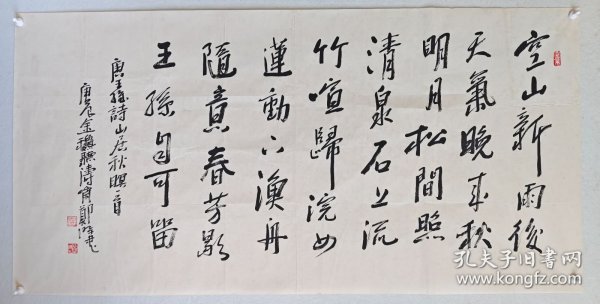 空山新雨後
天氣晚来秋
明月松間照
清泉石上流
竹喧歸浣女
蓮動下漁舟
隨意春芳歇
王孫自可留
唐王維詩山居秋暝一首
庚辰金秋
孔夫子旧书网
www.kongfz.com